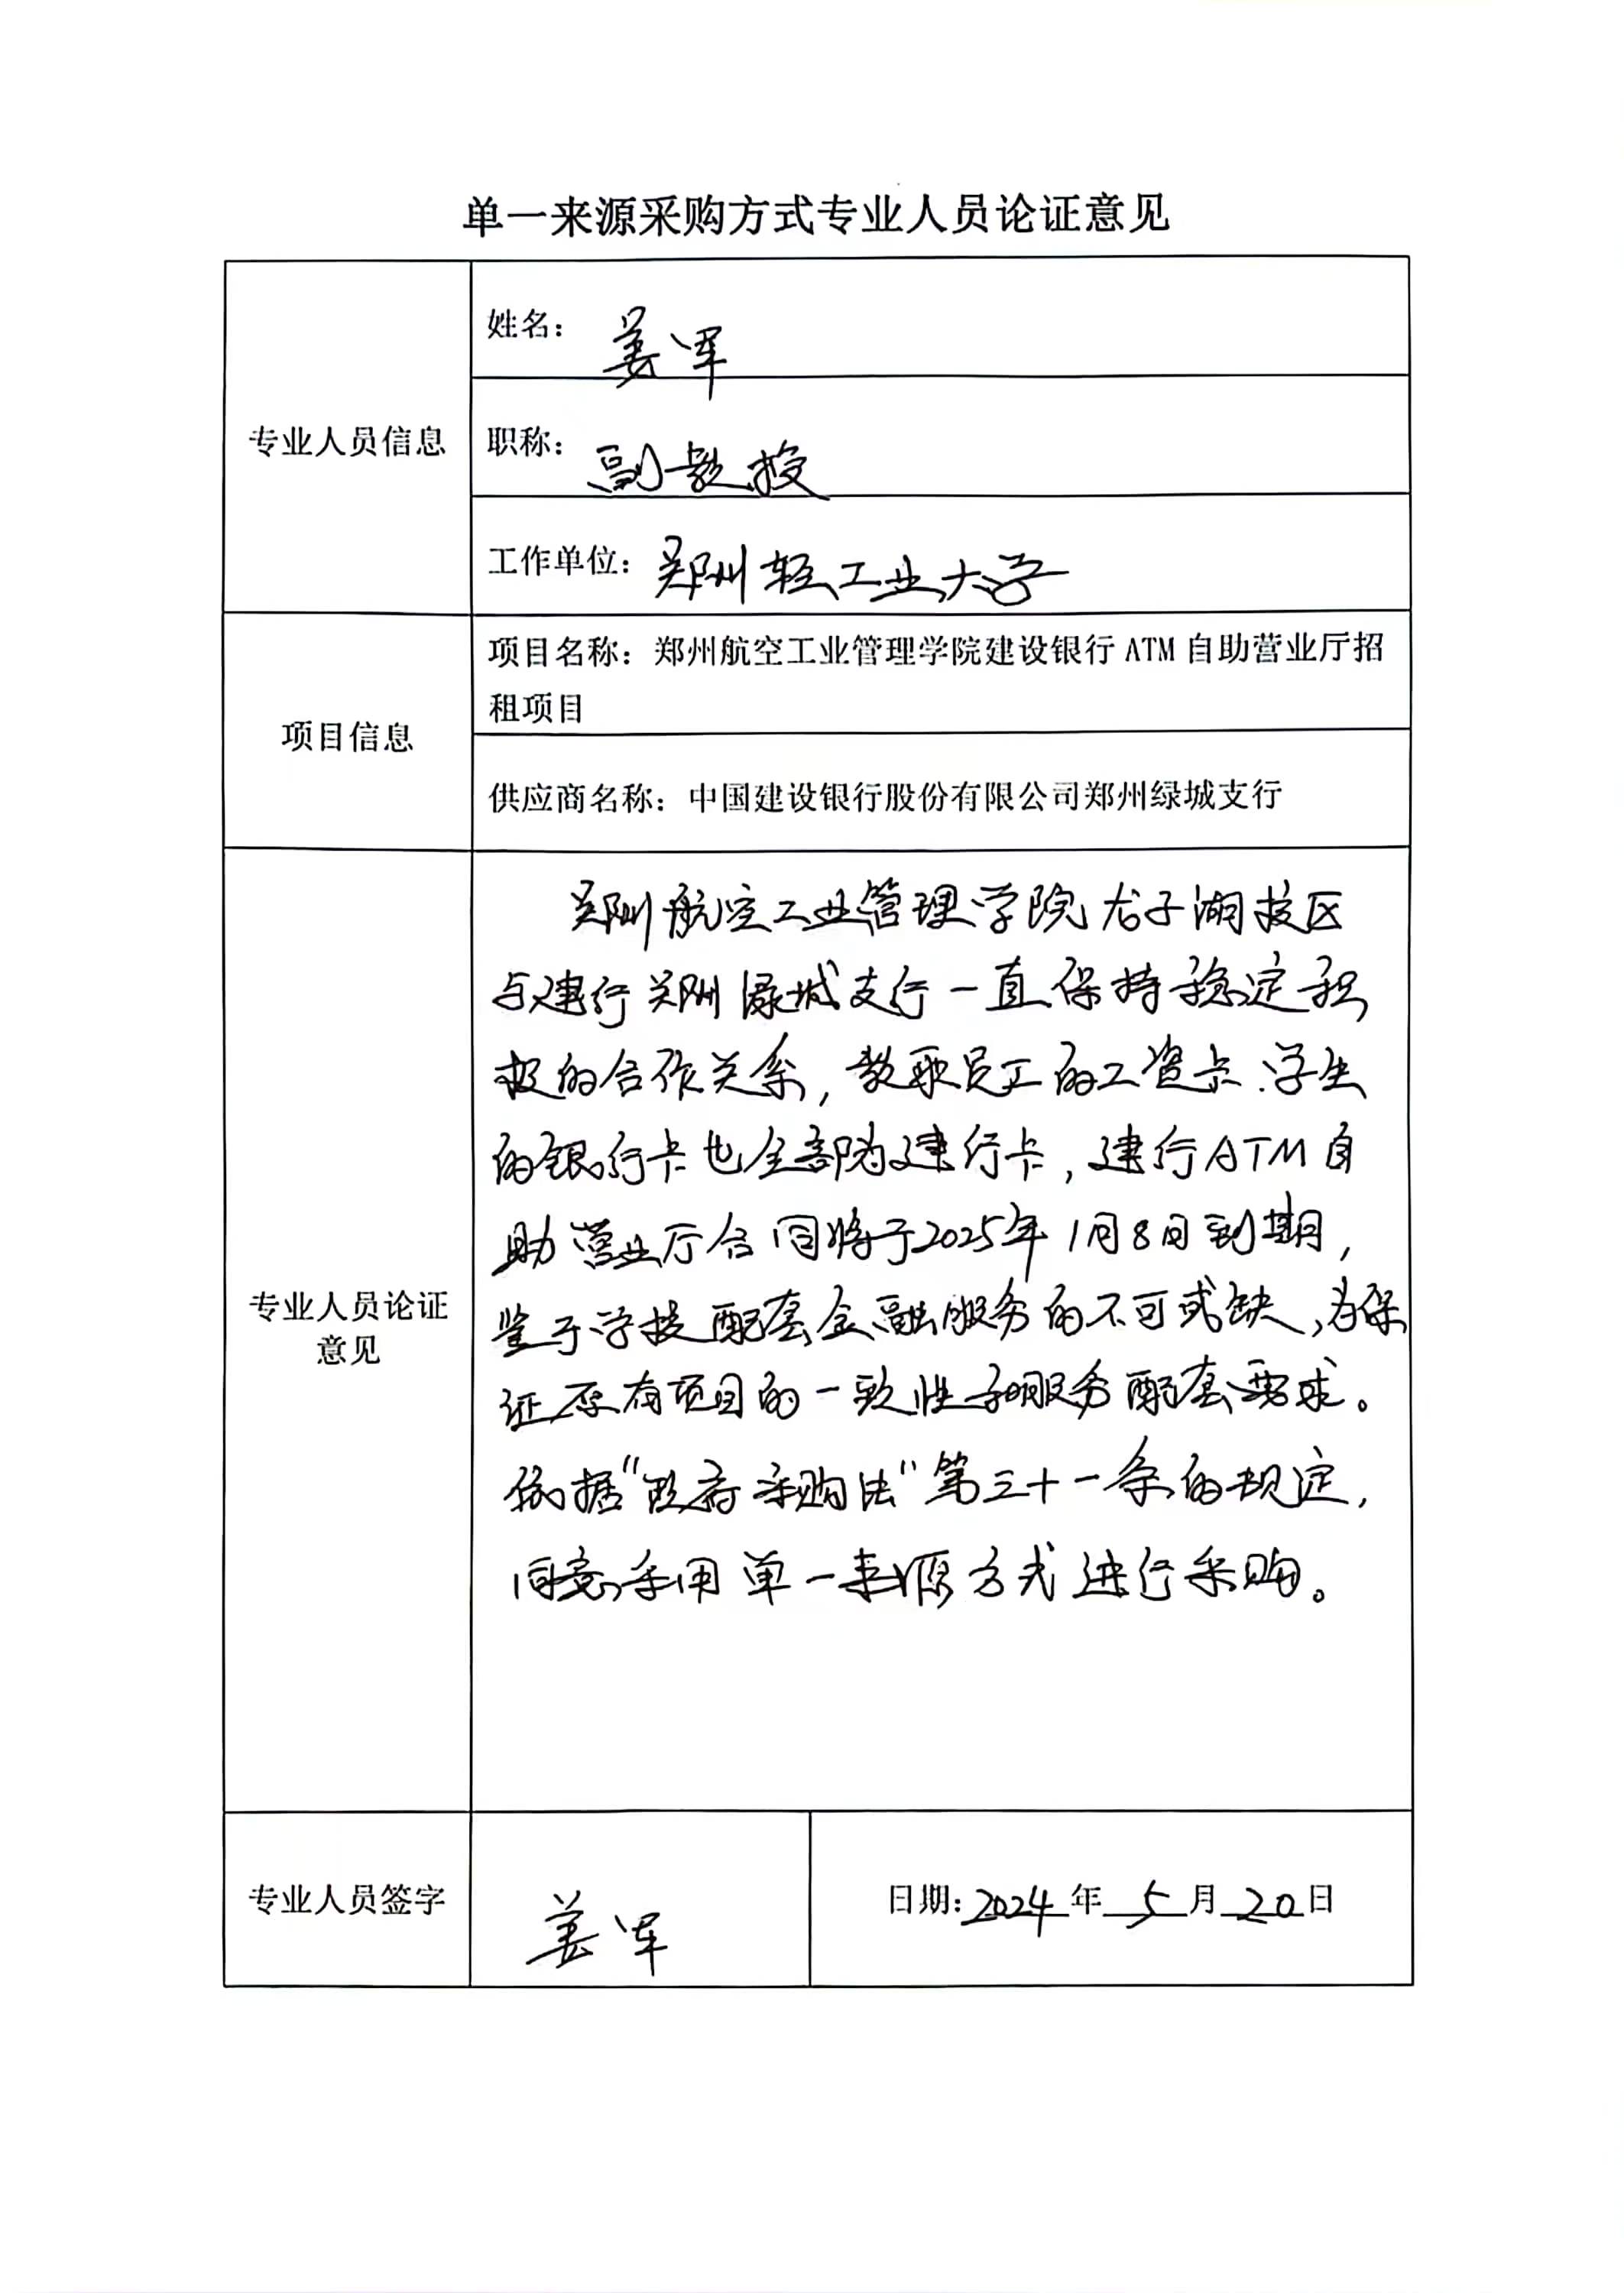 单一来源采购方式专业人员论证意见
专业人员信息
姓名：姜军
职称：副教授
工作单位：郑州轻工业大学
项目信息
项目名称：郑州航空工业管理学院建设银行 ATM 自助营业厅招
租项目
供应商名称：中国建设银行股份有限公司郑州绿城支行
专业人员论证
意见
郑州航空工业管理学院龙子湖校区
与建行郑州绿城支行一直保持稳定积
极的合作关系，教职员工的工资卡、学生
的银行卡也全部为建行卡，建行ATM自
助营业厅合同将于2025年1月8日到期，
鉴于学校配套金融服务的不可或缺，为保
证原有项目的一致性和服务配套要求。
依据“政府采购法”第三十一条的规定，
同意采用单一来源方式进行采购。
专业人员签字
姜军
日期:2024年5月20日